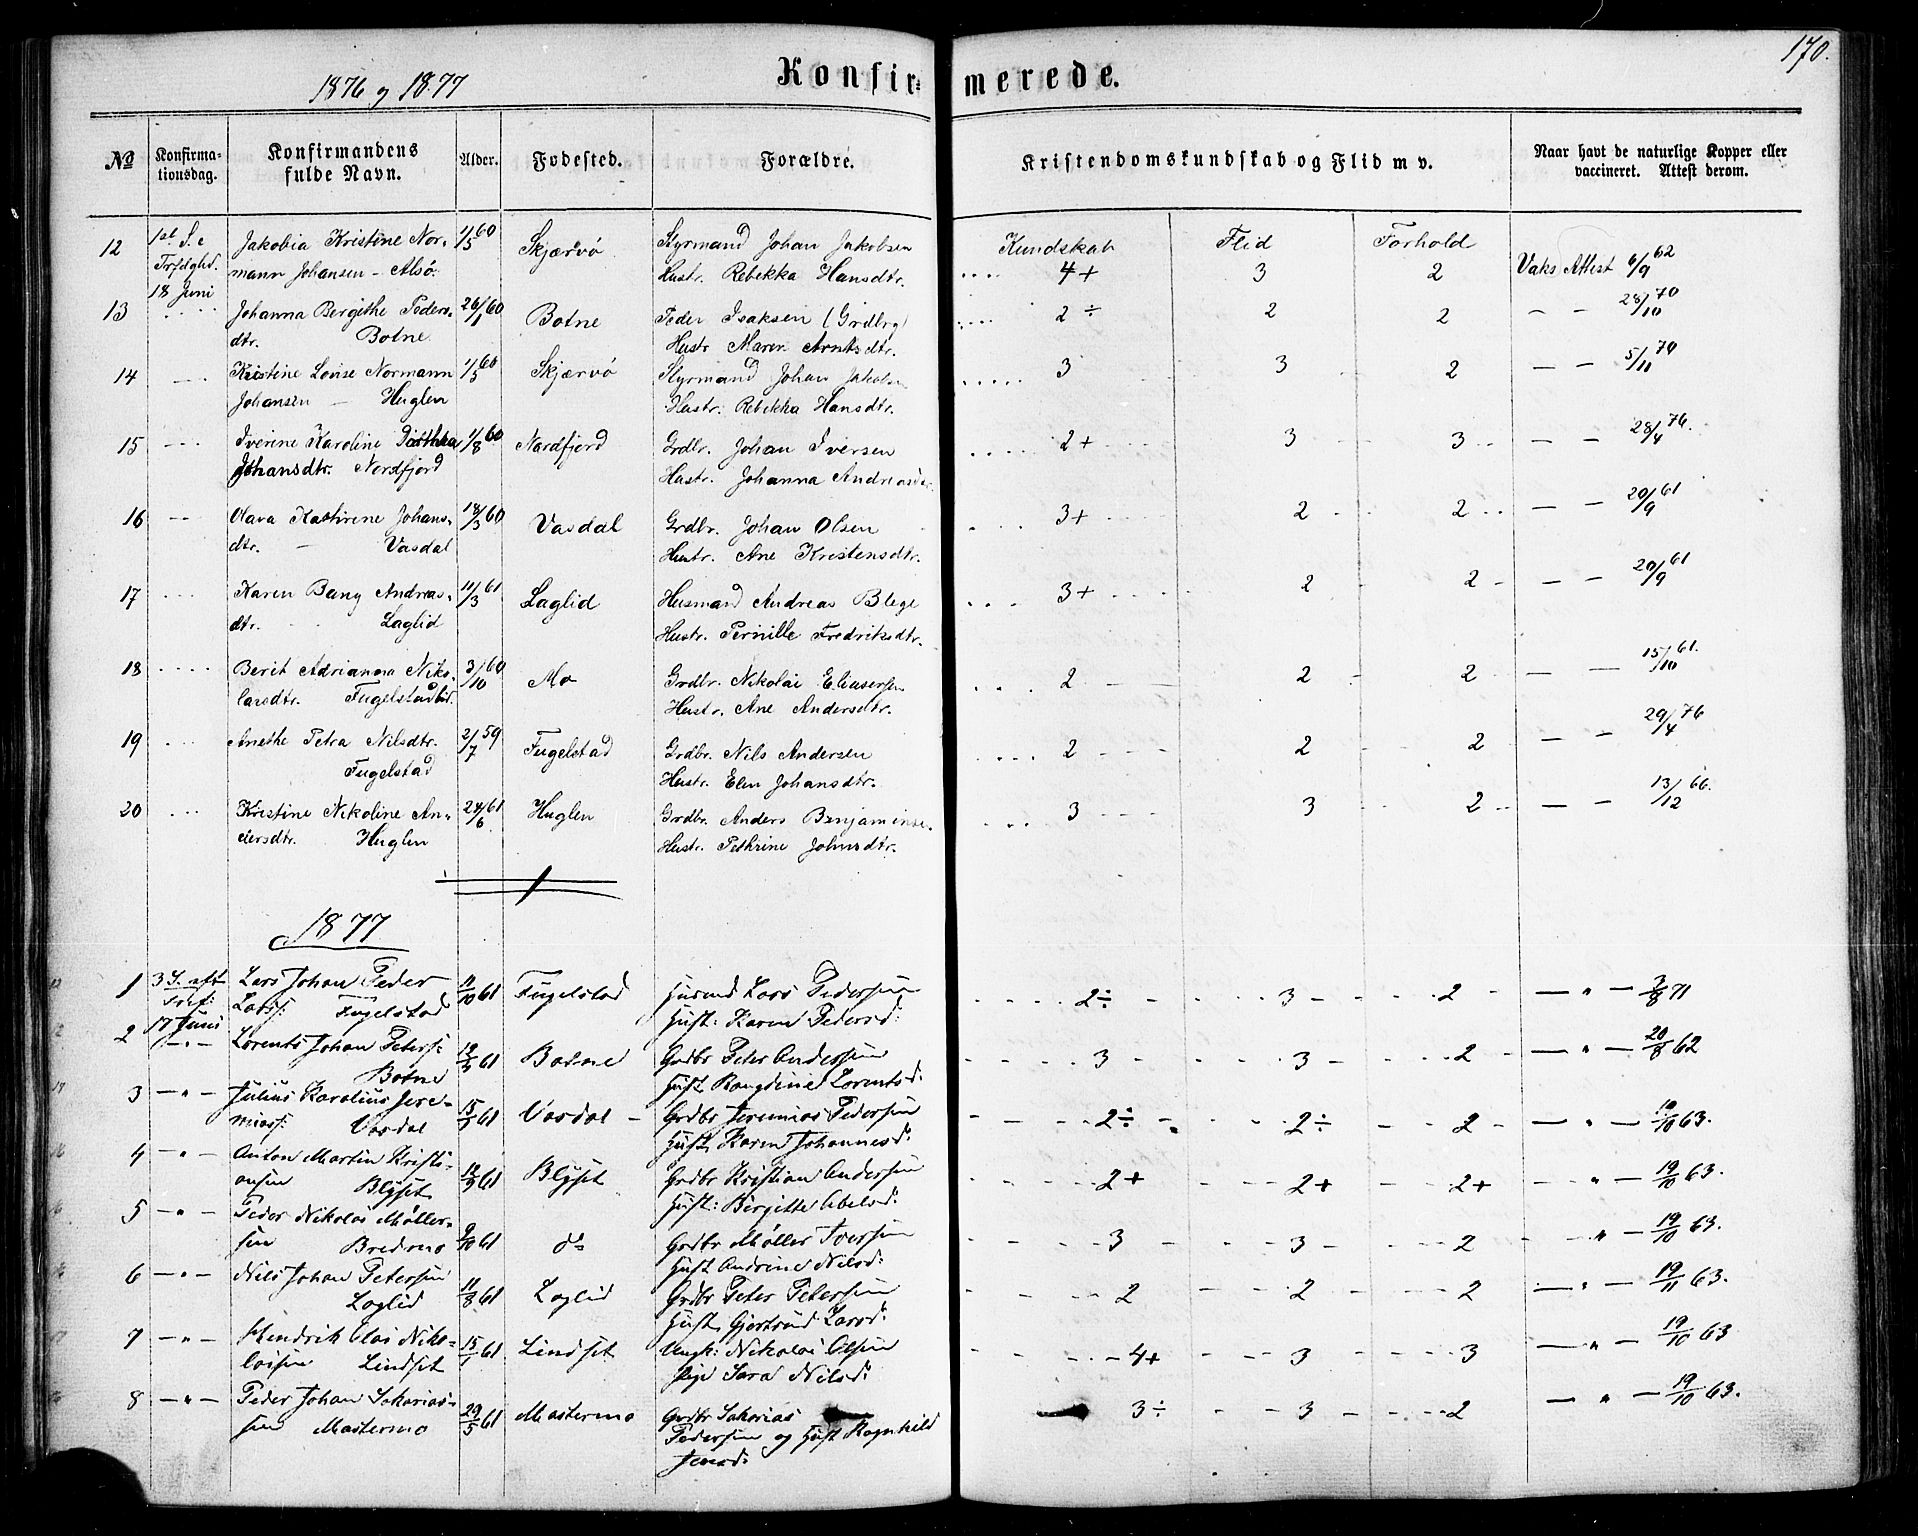 170.
1876 og 1877
Konfir- merede.
No
Konfirma-
tionsdag.
Konfirmandens
fulde Navn.
Alder.
Fodested.
Forældre.
Kristendomskundskab og Flid m v.
Naar havt de naturlige Kopper eller
vaccineret. Attest derom.
Kundskab Flid Forhold
12 1st S. e Jakobia Kristine Nor- 1/5 60 Skjærvö Styrmand Johan Jakobsen
Trfdghd. mann Johansen - Alsö Hustr. Rebekka Hansdtr. 4+ 3 2 Vaks Attest 6/9 62
18 Juni
13 Johanna Bergithe Peders- 26/1 60 Botne Peder Isaksen (Grdbrg) 2 ÷ 2 2 - - 28/10 70
dtr. Botne Hustr Maren Arntsdtr.
14 Kristine Lovise Normann 1/5 60 Skjærvö Styrmand Johan Jakobsen 3 3 2 - - 5/10 70
Johansen - Huglen Hustr. Rebekka Hansdtr.
15 Iverine Karoline 11/8 60 Nordfjord Grdbr. Johan Iversen 2+ 3 3 - - 28/4 76.
Johansdtr. Nordfjord Hustr. Johanna Andreasdtr.
16 Olava Kathrine Johans- 18/3 60 Vasdal Grdbr. Johan Olsen 3+ 2 2 - - 20/9 61
dtr. - Vasdal Hustr. Ane Kristensdtr.
17 Karen Bang Andreas- 11/3 61 Laglid Husmand Andreas Blege 3+ 2 2 - - 20/9 61
dtr. Laglid Hustr. Pernille Fredriksdtr.
18 Berit Adrianna Niko- 3/10 60 Mo Grdbr. Nikolai Eliasersen 2 2 2 - - 15/10 61.
laisdtr. Fugelstadlid. Hustr. Ane Andersdtr.
19 Anethe Petra Nilsdtr. 2/7 59 Fugelstad Grdbr. Nils Andersen 2 2 2 - - 29/4 76
Fugelstad Hustr. Elen Johansdtr.
20 Kristine Nikoline An- 24/6 61 Huglen Grdbr. Anders Benjaminse. 3 3 2 - - 13/12 66.
dersdtr. Huglen Hustr. Pethrine Johnsdtr.
1877
1 3 S. eft Lars Johan Peder 11/10 61 Fugelstad Husmd Lars Pedersen 2÷ 3 2 - " - 3/8 71
Tref: Larss: Fugelstad Hust: Karen Pedersd:
17 Juni
2 - " - Lorents Johan Peters: 61 Botne Grdbr Peter Andersen 3 3 2 - " - 20/8 62
Botne Hust Ragndine Lorentsd:
3 - " - Julius Karolius Jere- 61 Vasdal Grdbr Jeremias Pedersen 2÷ 2÷ 2 - " - 19/10 63.
miass: Vasdal Hust Karen Johannesd:
4 - " - Anton Martin Kristi- 61 Blÿset Grdbr Kristian Andersen 2+ 2+ 2+ - " - 19/10 63.
ansen Blÿset Hust: Bergitte Abelsd:
5 - " - Peder Nikolai Møller- 9/10 61 do Grdbr Møller Iversen 3 3 2 " - 19/10 63.
sen Bredmo Hust Andrine Nilsd:
6 - " - Nils Johan Petersen 11/8 61 Laglid Grdbr Peter Petersen 2 2 2 - " - 19/11 63.
Laglid Hust Gjertrud Larsd:
7 - " - Hendrik Olai Niko- 15/1 61 Lindset Ungk: Nikolai Olsen 4+ 3 3 - " - 19/10 63
laisen Lindset Pige Sara Nilsd:
8 - " - Peder Johan Sakarias- 29/5 61 Mastermo Grdbr Sakarias 3÷ 3 2 - " - 19/10 63.
sen Mastermo Pedersen og Hust Ragnhild
Jensd: